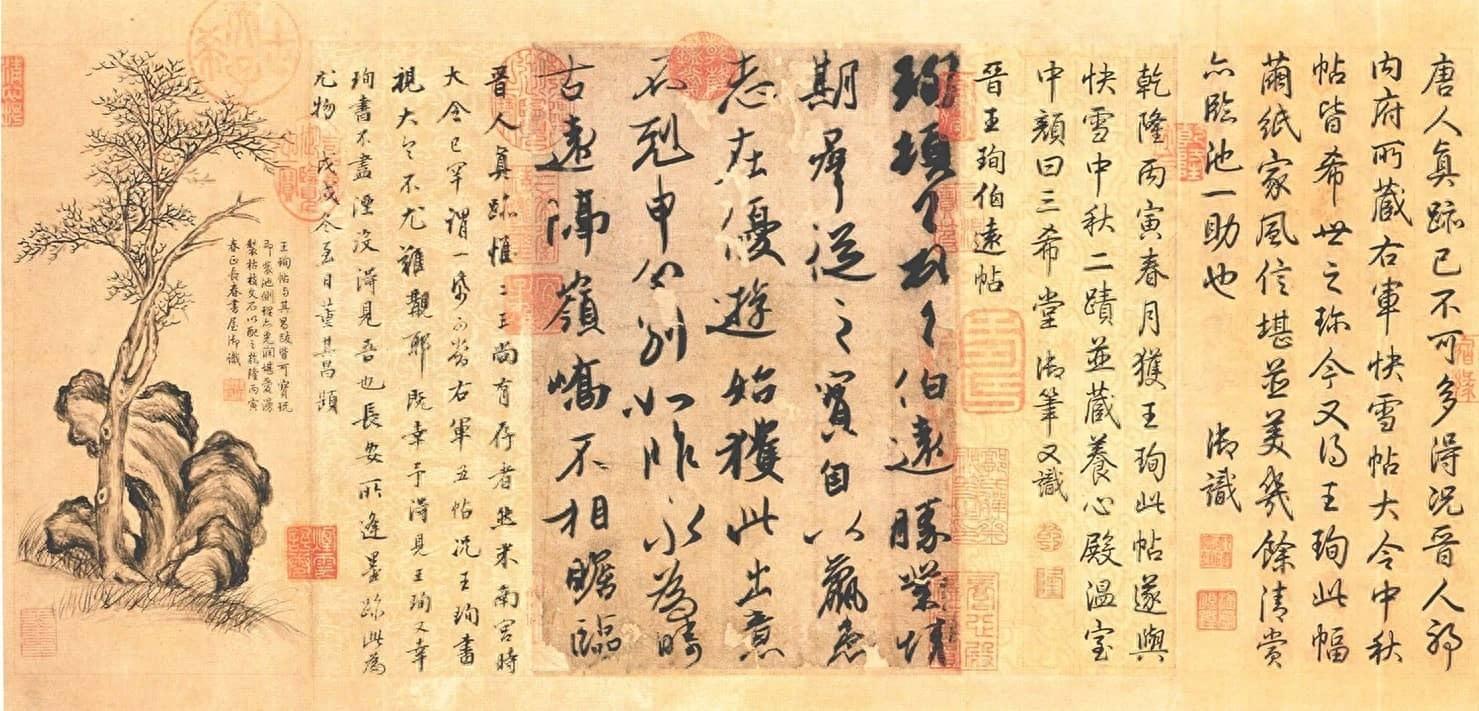 唐人真跡已不可多得況晉人耶
內府所藏右軍快雪帖大令中秋
帖皆希世之珍今又得王珣此幅
繭紙家風信堪並美幾餘清賞
亦臨池一助也　御識
乾隆丙寅春月獲王珣此帖遂與
快雪中秋二蹟並藏養心殿溫室
中顏曰三希堂御筆又識
晉王珣伯遠帖
珣頓首頓首伯遠勝業情
期群從之寶自以羸患
志在優遊始獲此出意
不剋申分別如昨永為疇
古遠隔嶺嶠不相瞻臨
晉人真跡惟二王尚有存者然米南宮時
大令已罕謂一紙可當右軍五帖況王珣書
視大令不尤難觀耶既幸予得見王珣又幸
珣書不盡湮沒得見吾也長安所逢墨跡此為
尤物戊戌冬至日董其昌題
王珣帖與其昌跋皆可寶玩
即裝池側理亦光潤堪愛漫
製枯枝文石以配之乾隆丙寅
春正長春書屋御識
乾
隆